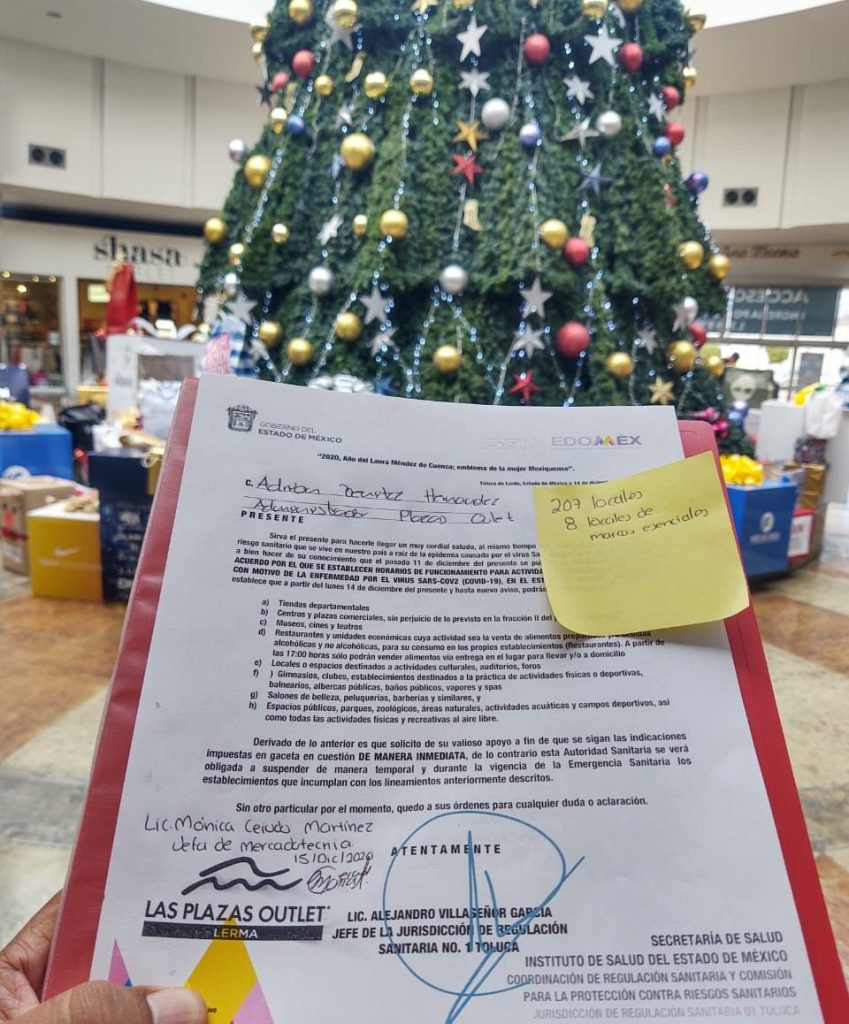 shasa
ACCESO
GOBIERNO DEL
ESTADO DE MÉXICO
EDOMÉX
"2020, Año del Laura Méndez de Cuenca; emblema de la mejor Mexiquense".
Toluca de Lerdo, Estado de México a 14 de
C.
Administrador Plazas Outlet
PRESENTE
207 locales
8 locales de
marcas esenciales
Sirva el presente para hacerle llegar un muy cordial saludo, al mismo tiempo
riesgo sanitario que se vive en nuestro país a raíz de la epidemia causada por el virus
a bien hacer de su conocimiento que el pasado 11 de diciembre del presente se
ACUERDO POR EL QUE SE ESTABLECEN HORARIOS DE FUNCIONAMIENTO PARA
CON MOTIVO DE LA ENFERMEDAD POR EL VIRUS SARS-COV2 (COVID-19). EN EL
establece que a partir del lunes 14 de diciembre del presente y hasta nuevo aviso,
a) Tiendas departamentales
b) Centros y plazas comerciales, sin perjuicio de lo previsto en la fracción II del
c) Museos, cines y teatros
d) Restaurantes y unidades económicas cuya actividad sea la venta de alimentos
alcohólicas y no alcohólicas, para su consumo en los propios establecimientos (Restaurantes). A partir de
las 17:00 horas sólo podrán vender alimentos vía entrega en el lugar para llevar y/o a domicilio
e) Locales o espacios destinados a actividades culturales, auditorios, foros
f) ) Gimnasios, clubes, establecimientos destinados a la práctica de actividades físicas o deportivas,
balnearios, albercas públicas, baños públicos, vapores y spas
g) Salones de belleza, peluquerías, barberías y similares, y
h) Espacios públicos, parques, zoológicos, áreas naturales, actividades acuáticas y campos deportivos, así
como todas las actividades físicas y recreativas al aire libre.
Derivado de lo anterior es que solicito de su valioso apoyo a fin de que se sigan las indicaciones
impuestas en gaceta en cuestión DE MANERA INMEDIATA, de lo contrario esta Autoridad Sanitaria se verá
obligada a suspender de manera temporal y durante la vigencia de la Emergencia Sanitaria los
establecimientos que incumplan con los lineamientos anteriormente descritos.
Sin otro particular por el momento, quedo a sus órdenes para cualquier duda o aclaración.
Lic. Mónica Ceiudo Martínez
Jefa de mercadotecnia
15/Dic/2020
ATENTAMENTE
LAS PLAZAS OUTLET
LERMA
LIC. ALEJANDRO VILLASEÑOR GARCIA
JEFE DE LA JURISDICCIÓN DE REGULACIÓN
SANITARIA NO. 1 TOLUCA
SECRETARÍA DE SALUD
INSTITUTO DE SALUD DEL ESTADO DE MÉXICO
COORDINACIÓN DE REGULACIÓN SANITARIA Y COMISIÓN
PARA LA PROTECCIÓN CONTRA RIESGOS SANITARIOS
JURISDICCIÓN DE REGULACIÓN SANITARIA 01 TOLUCA